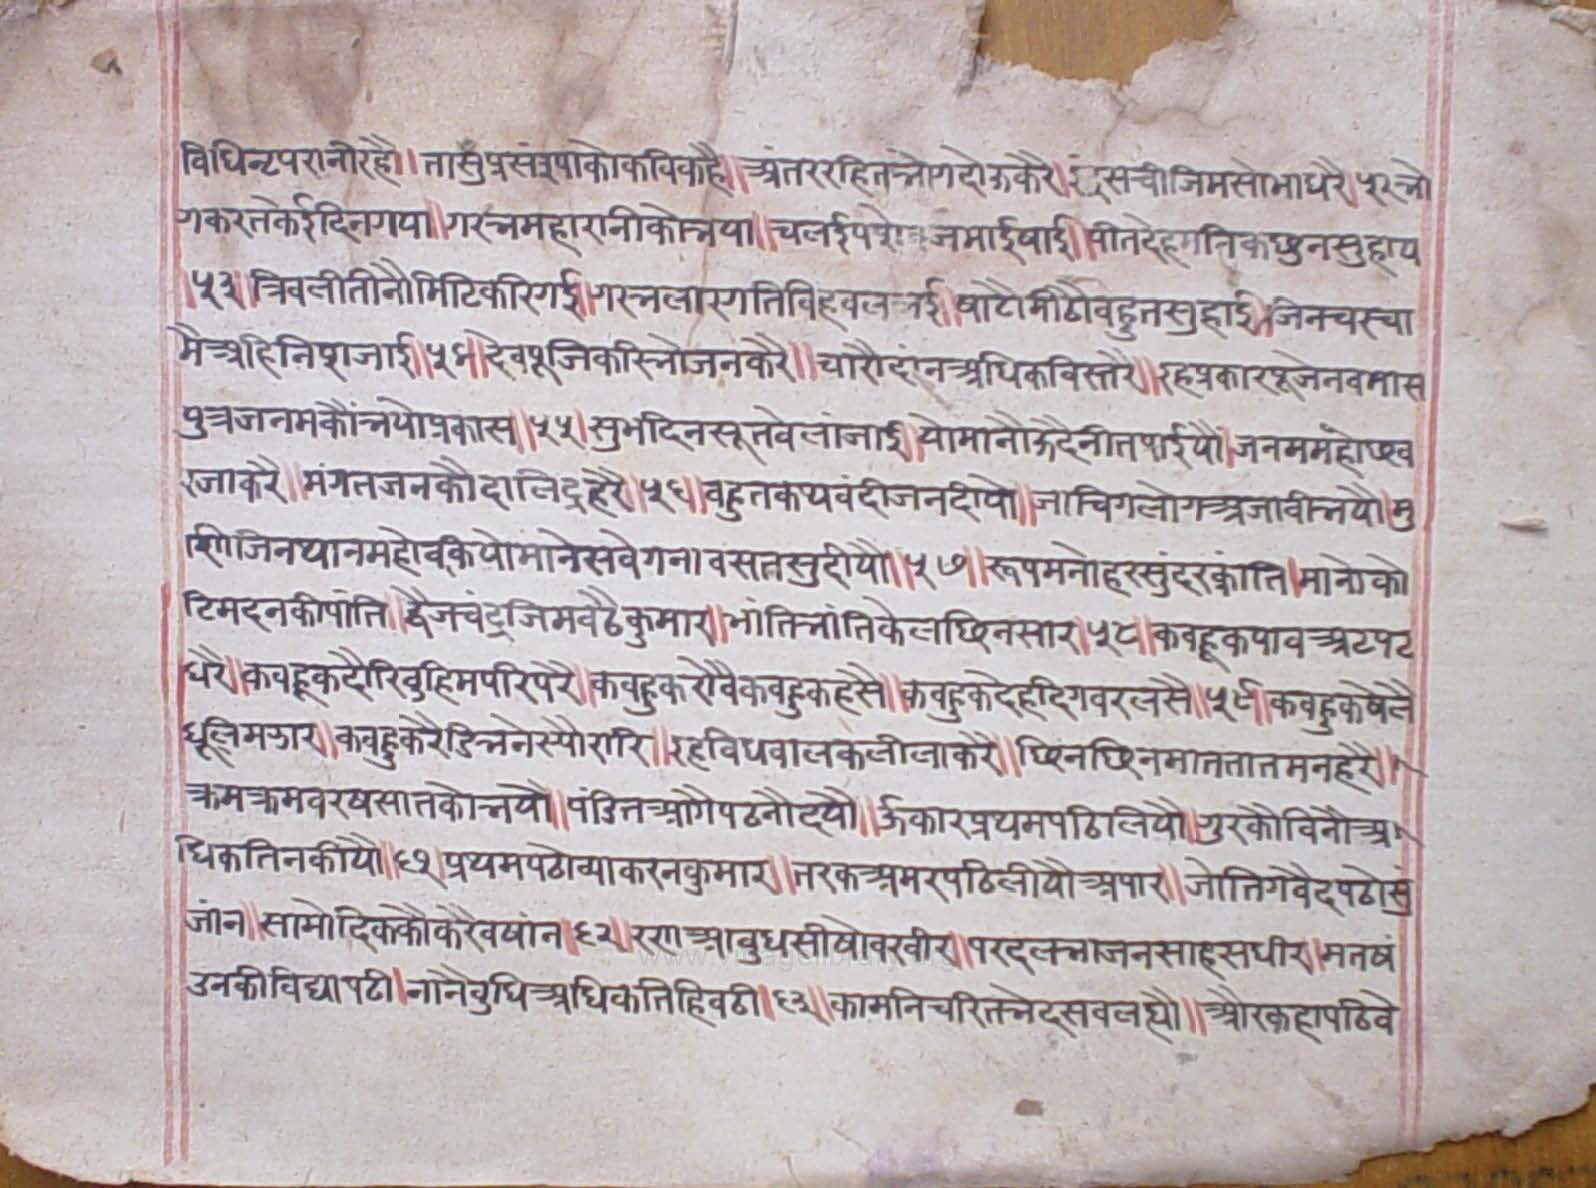 विधिन्टपरानीरहै॥ तासुप्रसंस्याकोकविकहै॥ अंतररहितभोगदोऊकरै॥ इंद्रसचीजिमसोभाधरै॥५२॥भो
गकरतकेईदिनगया॥गरभमहारानीकोभया॥चलई जमाईषाई॥पीतदेहमतिकछुनसुहाय
॥५३॥त्रिवलीतीनौमिटिकरिगई॥गरभलारगतिविहवलभई॥षाटौमीठौवहुतसुहाई॥जिनचरचा
मैअहिनिशजाई॥५४॥देवपूजिकरिभोजनकरै॥चारौदांनअधिकविस्तरै॥इहप्रकारपूजेनवमास
पुत्रजनमकौंभयोप्रकास॥५५॥सुभदिनसूतवेलांजाई॥योमानौऊदैनीतषाईयौ॥जनममहोछव
रजाकरै॥मंगतजनकौदालिद्रहरै॥५६॥वहुतकथवंदीजनदीयो॥जाचिगलोगअजावीभयौ॥मु
रिगजिनथानमहोवकियोमांनेसवेगनावसतसुदीयौ॥५७॥रूपमनोहरसुंदरकांति॥मानोको
टिमदनकीपांति॥द्वैजचंद्रजिमवढैकुमार॥भांतिभांतिकेलछिनसार॥५८॥कवहूकपावअटपट
धरै॥कवहूकदौरिवुहिमपरिपरै॥कवुहुकरोवैकवहुकहसै॥कवुहुकदेहदिगवरलसै॥५९॥कवहुकषेलै
धूलिमझार॥कवुहुकरैडिभनेस्यौरारि॥इहविधवालकलीलाकरै॥छिनछिनमाततातमनहरै॥
क्रमक्रमवरषसातकोभयौ॥पंडितआगैपढनौदयौ॥ऊंकारप्रथमपढिलियौ॥गुरकौविनौअ
धिकतिनकीयौ॥६१॥प्रथमपढोव्याकरनकुमार॥तरकअमरपढिलीयौअपार॥जोतिगवैदपढोसुं
जांन॥सामोदिककौकरैवषांन॥६२॥ररणआवुधसीषोवरवीर॥परदलभाजनसाहसधीर॥मतषं
उनकीविद्यापढी॥नानैवुधिअधिकतिहिवढी॥६३॥कामनिचरितभेदसवलह्यौ॥औरकहापढिवे